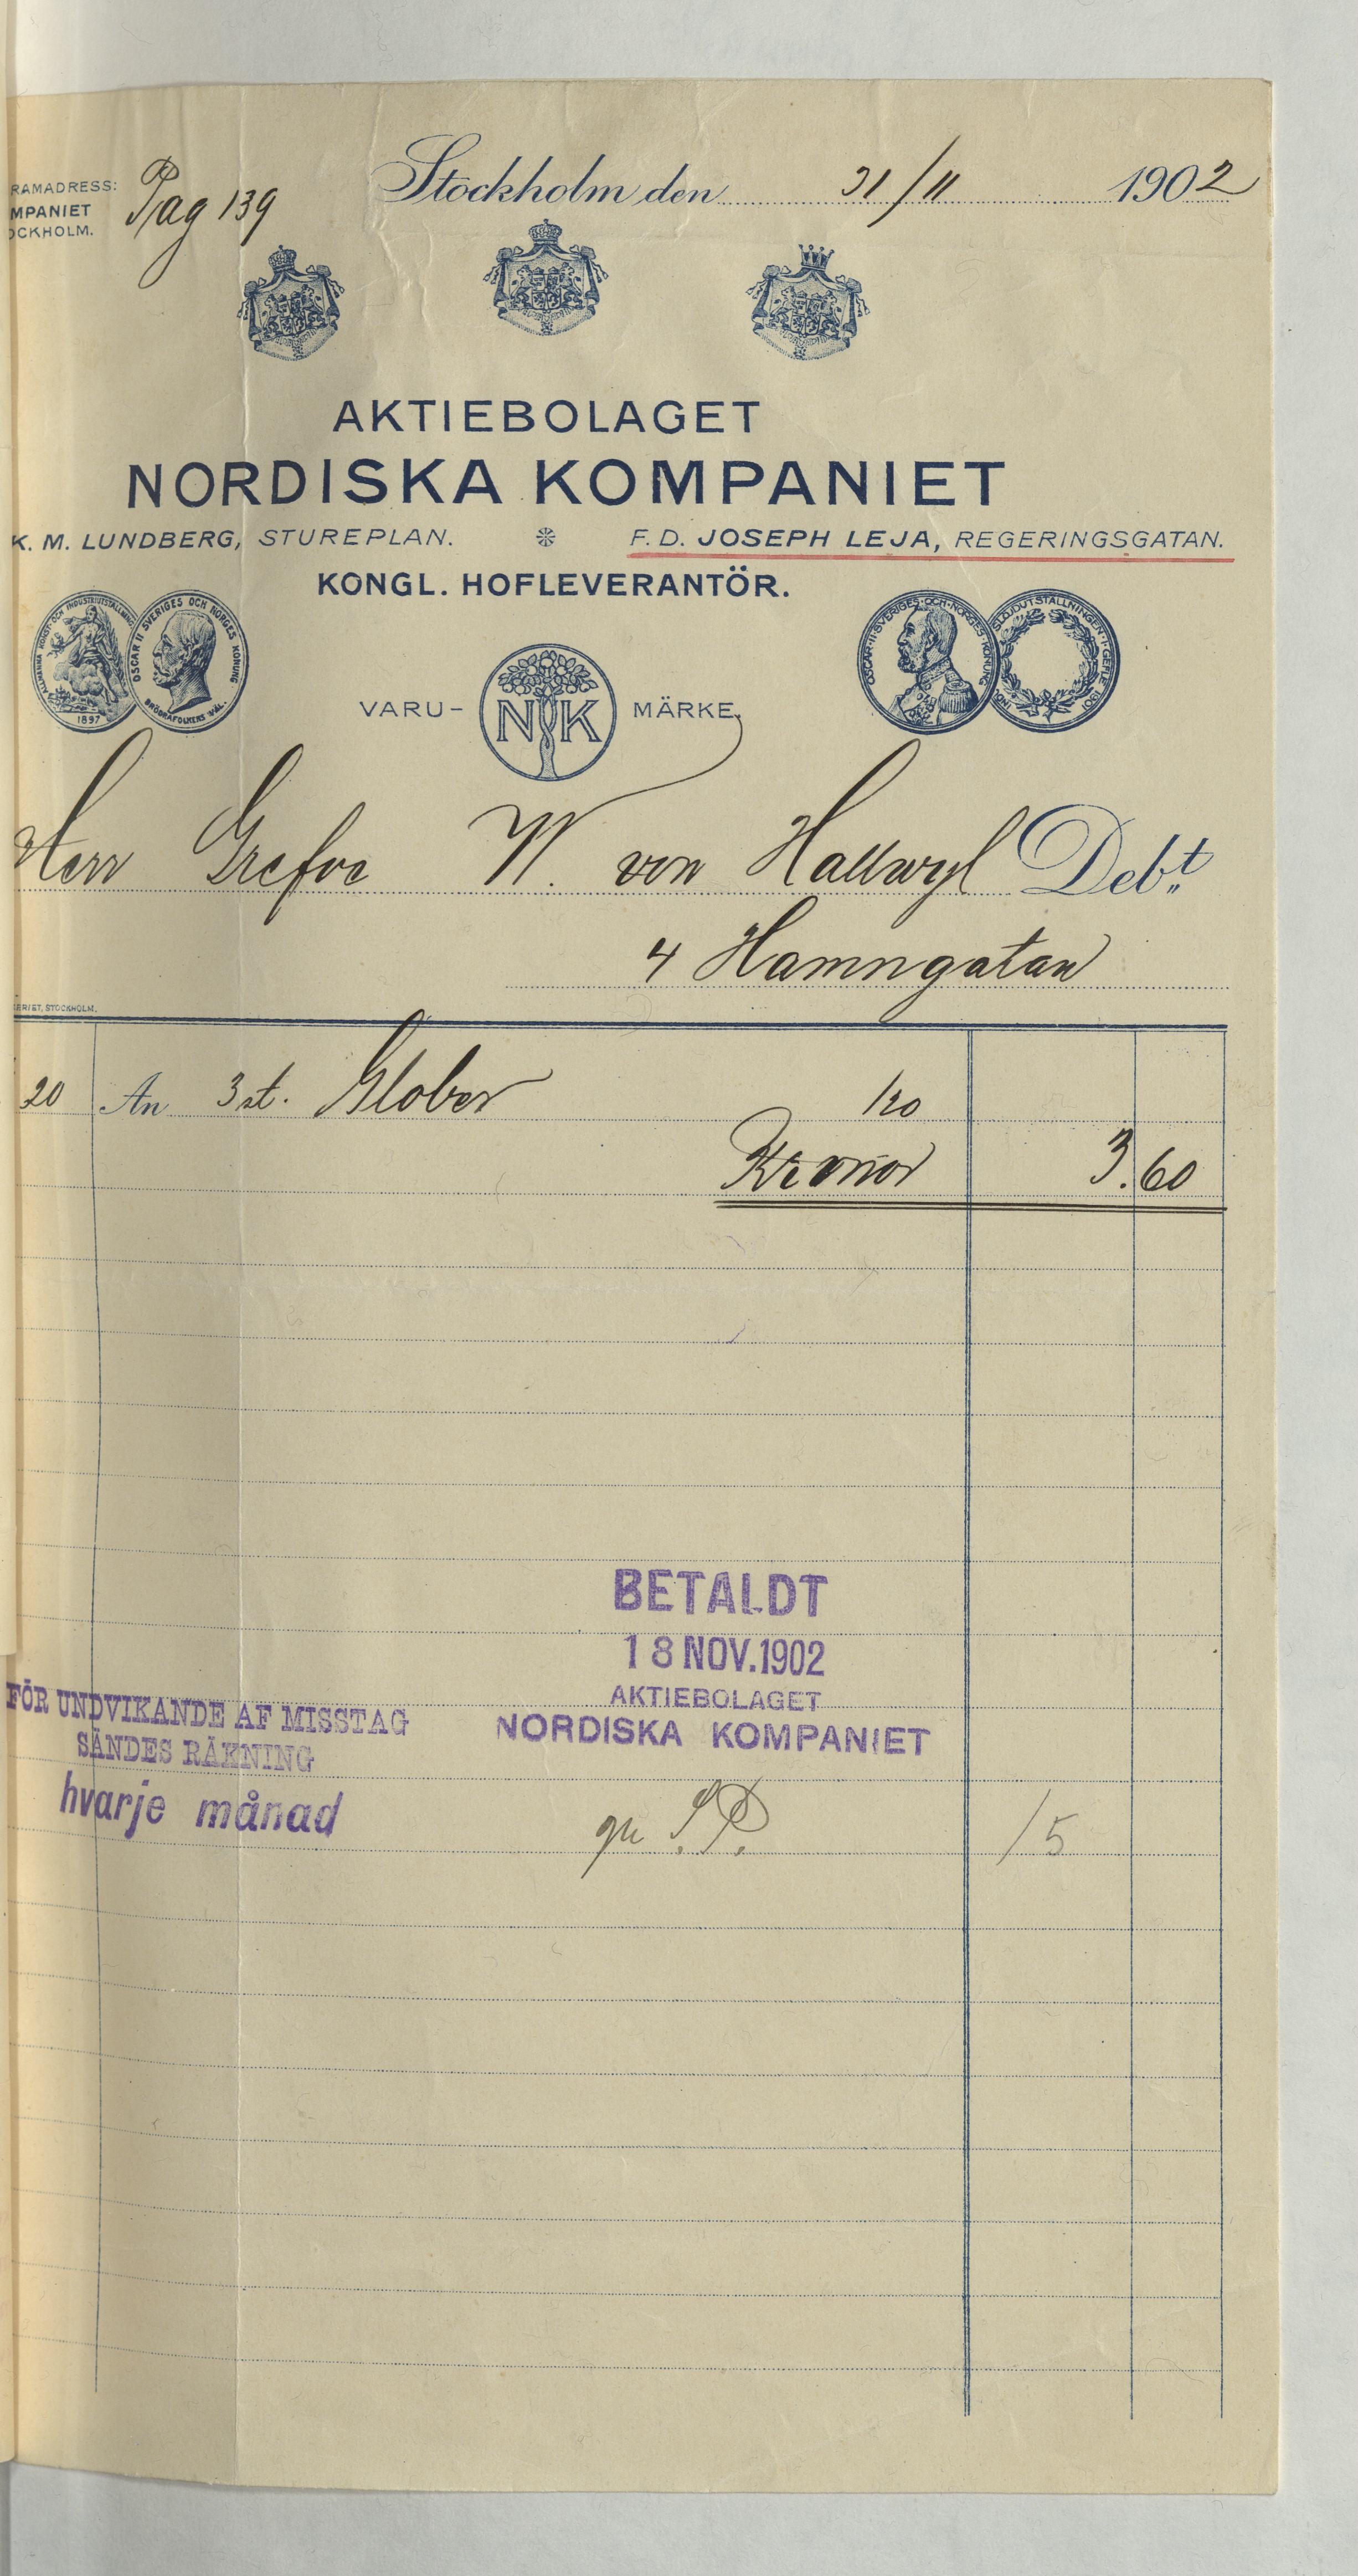 RAMADRESS:
MPANIET
OCKHOLM.
Pag 139
Stockholm den 31/11 1902
AKTIEBOLAGET
NORDISKA KOMPANIET
K. M. LUNDBERG, STUREPLAN. F. D. JOSEPH LEJA, REGERINGSGATAN.
KONGL. HOFLEVERANTÖR.
ALLMÄNNA KONST- OCH INDUSTRIUTSTÄLLNING 1897
OSCAR II SVERIGES OCH NORGES KONUNG
BRÖDRAFOLKENS VÄL.
OSCAR·II·SVERIGES·OCH·NORGES·KONUNG
SLÖJDUTSTÄLLNINGEN·I·GEFLE·1901
VARU- NK MÄRKE.
Herr Grefve W. von Hallwyl Debt
4 Hamngatan
ERIET, STOCKHOLM.
20 An 3 st. Glober 120
Kronor 3.60
BETALDT
18 NOV. 1902
AKTIEBOLAGET
NORDISKA KOMPANIET
FÖR UNDVIKANDE AF MISSTAG
SÄNDES RÄKNING
hvarje månad
S.P. /5